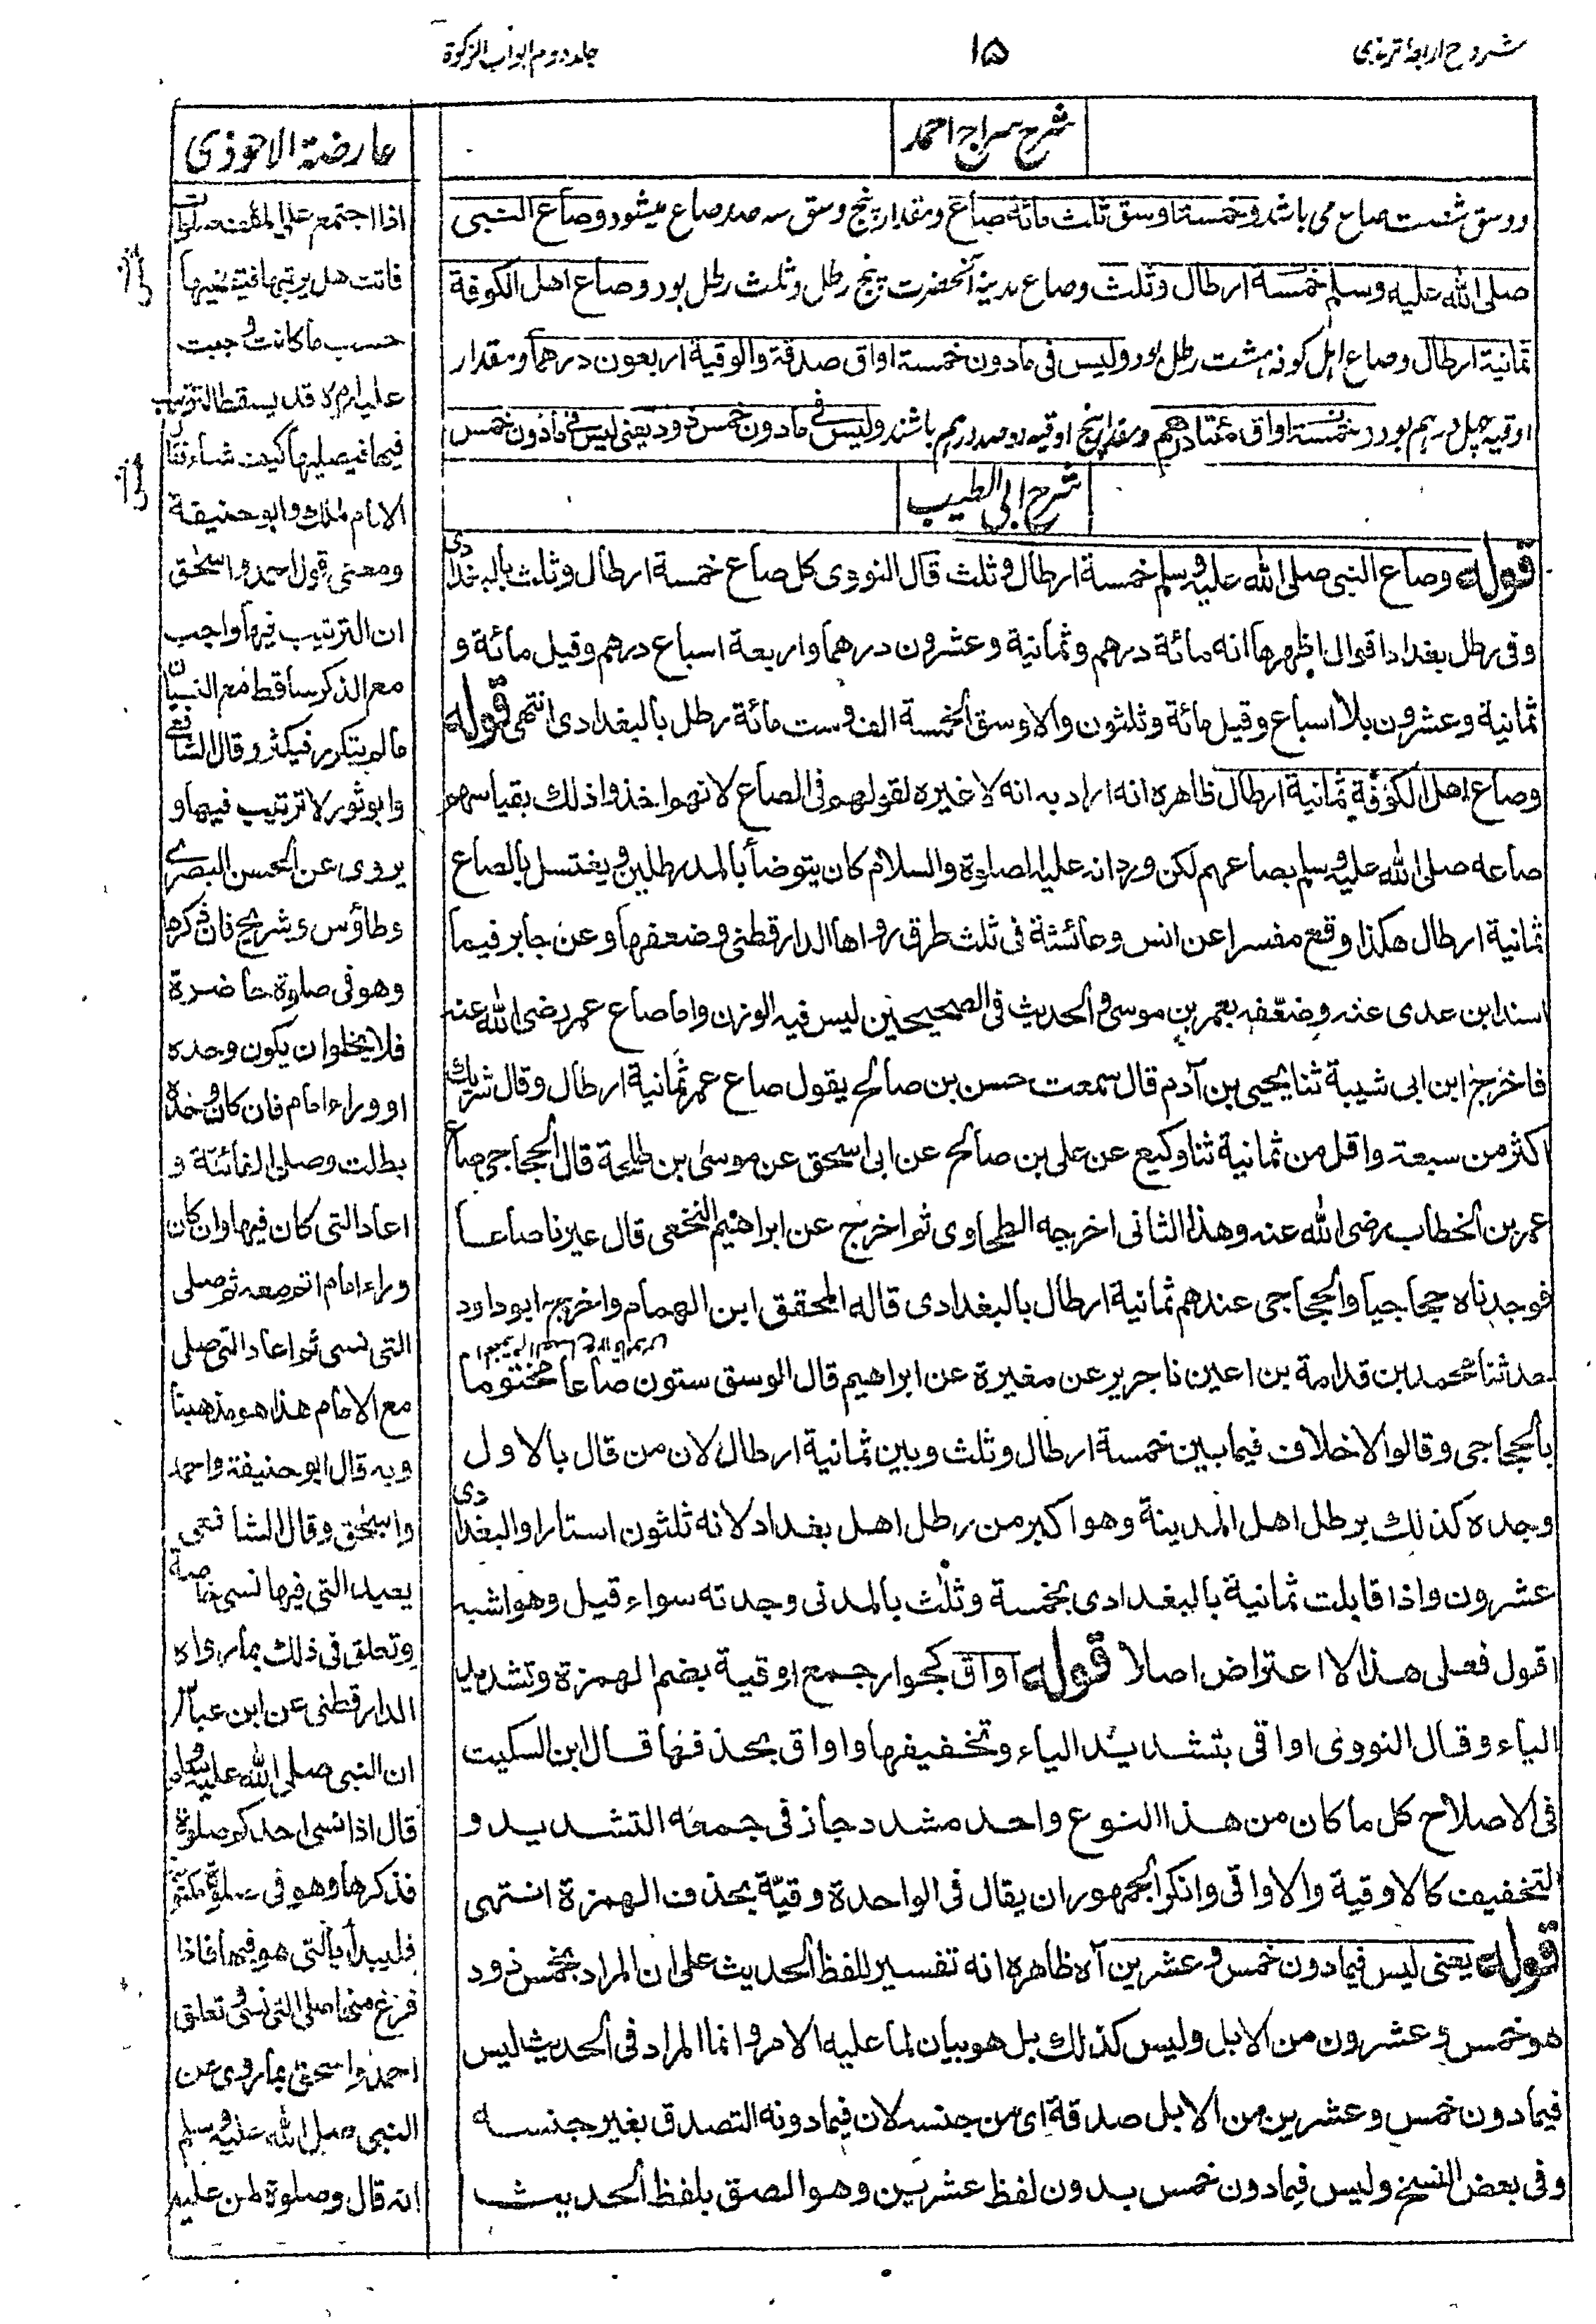 شروح اربعۂ ترمذی
۱۵
جلد دوم ابواب الزکوة
شرح سراج احمد
ووسق شصت صاع می باشد وخمسة اوسق ثلث مائة صاع ومقدار پنج وسق سه صد صاع میشود وصاع النبی
صلی الله علیه وسلم خمسة ارطال وثلث وصاع مدینۂ آنحضرت پنج رطل وثلث رطل بود وصاع اهل الکوفة
ثمانیة ارطال وصاع اہل کوفہ ہشت رطل بود ولیس فی مادون خمسة اواق صدقة والوقیة اربعون درهما ومقدار
اوقیہ چہل درہم بود وخمسة اواق مئتا درهم ومقدار پنج اوقیہ دو صد درہم باشند ولیس فی مادون خمس ذود یعنی لیس فی مادون خمس
شرح ابی الطیب
قوله وصاع النبی صلی الله علیه وسلم خمسة ارطال وثلث قال النووی کل صاع خمسة ارطال وثلث بالبغدادی
وفی رطل بغداد اقوال اظهرها انه مائة درهم وثمانیة وعشرون درهما واربعة اسباع درهم وقیل مائة و
ثمانیة وعشرون بلا اسباع وقیل مائة وثلثون والاوسق الخمسة الف وست مائة رطل بالبغدادی انتهی قوله
وصاع اهل الکوفة ثمانیة ارطال ظاهره انه اراد به انه لا غیره لقولهم فی الصاع لانهم اخذوا ذلك بقیاسهم
صاعه صلی الله علیه وسلم بصاعهم لکن ورد انه علیه الصلوة والسلام کان یتوضأ بالمد رطلین ویغتسل بالصاع
ثمانیة ارطال هکذا وقع مفسرا عن انس وعائشة فی ثلث طرق رواها الدارقطنی وضعفها وعن جابر فیما
اسند ابن عدی عنه وضعّفه بعمر بن موسی والحدیث فی الصحیحین لیس فیه الوزن واما صاع عمر رضی الله عنه
فاخرج ابن ابی شیبة ثنا یحیی بن آدم قال سمعت حسن بن صالح یقول صاع عمر ثمانیة ارطال وقال شریك
اکثر من سبعة واقل من ثمانیة ثنا وکیع عن علی بن صالح عن ابی اسحق عن موسی بن طلحة قال الحجاجی صاع
عمر بن الخطاب رضی الله عنه وهذا الثانی اخرجه الطحاوی ثم اخرج عن ابراهیم النخعی قال عیرنا صاعا
فوجدناه حجاجیا والحجاجی عندهم ثمانیة ارطال بالبغدادی قاله المحقق ابن الهمام واخرج ابو داود
حدثنا محمد بن قدامة بن اعین نا جریر عن مغیرة عن ابراهیم قال الوسق ستون صاعا مختوما
بالحجاجی وقالوا لا خلاف فیما بین خمسة ارطال وثلث وبین ثمانیة ارطال لان من قال بالاول
وجده کذلك برطل اهل المدینة وهو اکبر من رطل اهل بغداد لانه ثلثون استارا والبغدادی
عشرون واذا قابلت ثمانیة بالبغدادی بخمسة وثلث بالمدنی وجدته سواء قیل وهو اشبه
اقول فعلی هذا لا اعتراض اصلا قوله اواق کجوار جمع اوقیة بضم الهمزة وتشدید
الیاء وقال النووی اواقی بتشدید الیاء وتخفیفها واواق بحذفها قال ابن السکیت
فی الاصلاح کل ما کان من هذا النوع واحد مشدد جاز فی جمعه التشدید و
التخفیف کالاوقیة والاواقی وانکر الجمهور ان یقال فی الواحدة وقیّة بحذف الهمزة انتهی
قوله یعنی لیس فیما دون خمس وعشرین آه ظاهره انه تفسیر للفظ الحدیث علی ان المراد بخمس ذود
هو خمس وعشرون من الابل ولیس کذلك بل هو بیان لما علیه الامر وانما المراد فی الحدیث لیس
فیما دون خمس وعشرین من الابل صدقة ای من جنسه لان فیما دونه التصدق بغیر جنسه
وفی بعض النسخ ولیس فیما دون خمس بدون لفظ عشرین وهو الصق بلفظ الحدیث
عارضة الاحوذی
اذا اجتمع علی المکلف صلوات
فاتت هل یرتبها فیقضیها
حسب ما کانت وجبت
علیه ام لا قد یسقط الترتیب
فیها فیصلیها کیف شاء فقال
الامام مالك وابو حنیفة
ومعنی قول احمد واسحق
ان الترتیب فیها واجب
مع الذکر ساقط مع النسیان
ما لم یتکرر فیکثر وقال الشافعی
وابو ثور لا ترتیب فیها و
یروی عن الحسن البصری
وطاؤس وشریح فان ذکرها
وهو فی صلوة حاضرة
فلا یخلو ان یکون وحده
او وراء امام فان کان وحده
بطلت وصلی الفائتة و
اعاد التی کان فیها وان کان
وراء امام اتم معه ثم صلی
التی نسی ثم اعاد التی صلی
مع الامام هذا هو مذهبنا
وبه قال ابو حنیفة واحمد
واسحق وقال الشافعی
یعید التی فیها نسی خاصة
وتعلق فی ذلك بما رواه
الدارقطنی عن ابن عباس
ان النبی صلی الله علیه وسلم
قال اذا نسی احدکم صلوة
فذکرها وهو فی صلوة مکتوبة
فلیبدأ بالتی هو فیها فاذا
فرغ منها صلی التی نسی وتعلق
احمد واسحق بما روی عن
النبی صلی الله علیه وسلم
انه قال وصلوة لمن علیه